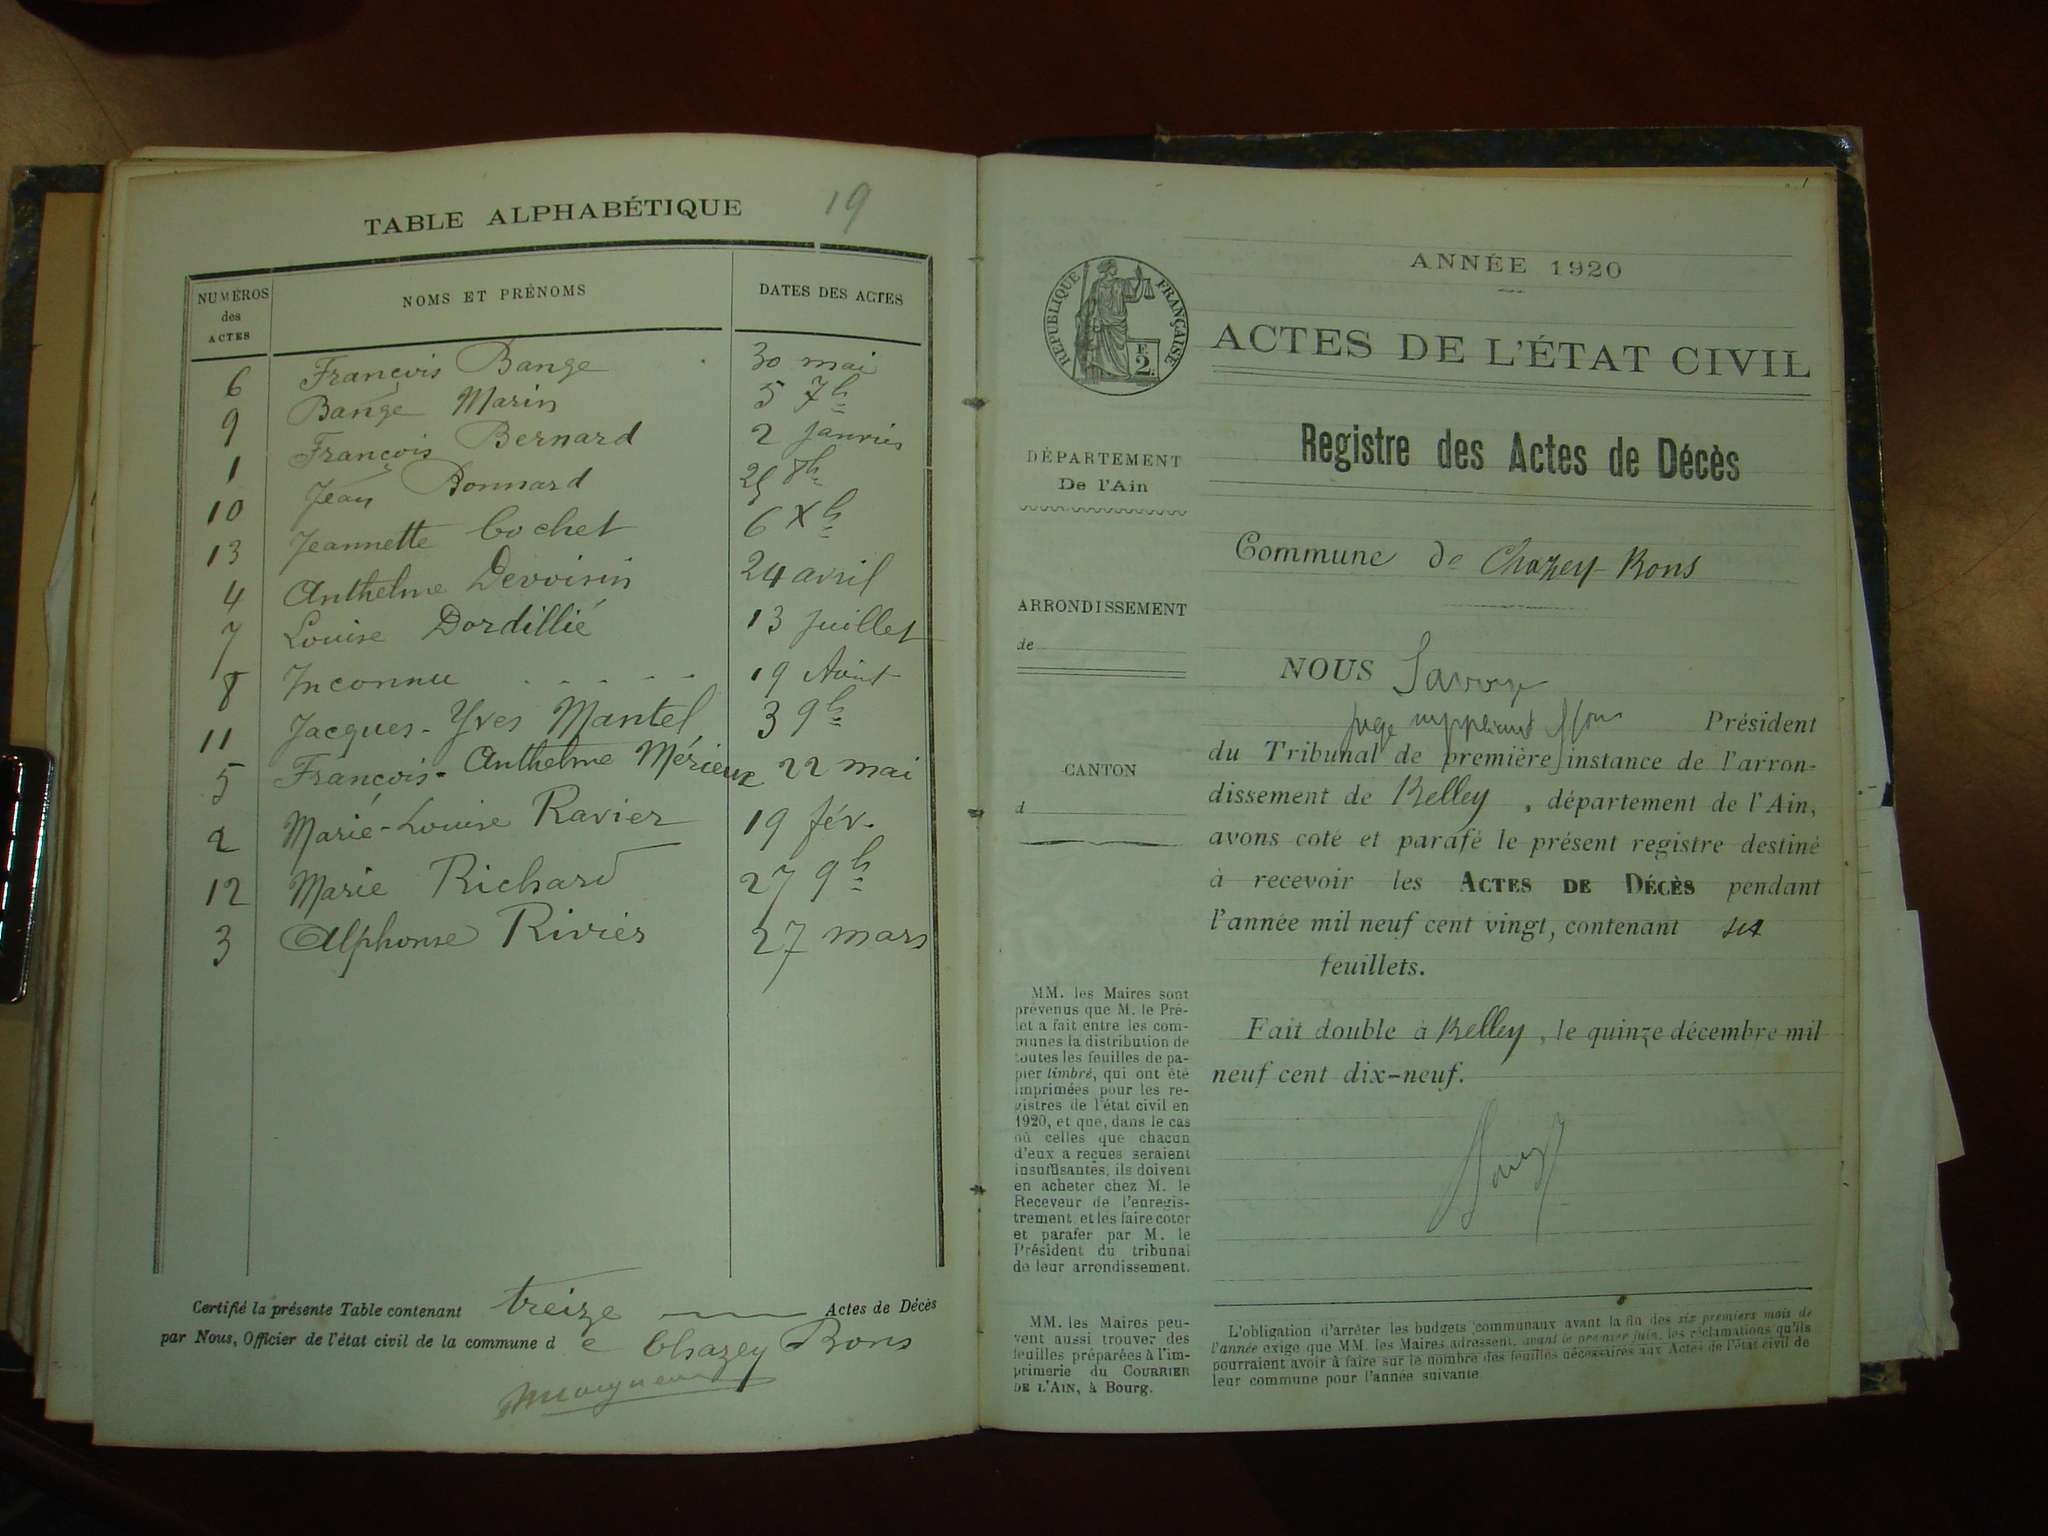 TABLE ALPHABÉTIQUE 19
NUMÉROS des ACTES NOMS ET PRÉNOMS DATES DES ACTES
6 François Bange 30 mai
9 Bange Marin 5 7b
1 François Bernard 2 Janvier
10 Jean Bonnard 25 8b
13 Jeannette Cochet 6 Xb
4 Anthelme Devoisin 24 avril
7 Louise Dordillié 13 Juillet
8 Inconnu . . . . . 19 Août
11 Jacques-Yves Mantel 3 9b
5 François-Anthelme Mérieux 22 mai
2 Marie-Louise Ravier 19 fév.
12 Marie Richard 27 9b
3 Alphonse Rivier 27 mars
Certifié la présente Table contenant treize Actes de Décès
par Nous, Officier de l'état civil de la commune d e Chazey Bons
ANNÉE 1920
RÉPUBLIQUE FRANÇAISE
F.
2.
ACTES DE L'ÉTAT CIVIL
Registre des Actes de Décès
DÉPARTEMENT
De l'Ain
Commune de Chazey-Bons
ARRONDISSEMENT
de
CANTON
d
NOUS
juge suppléant Président
du Tribunal de première instance de l'arron-
dissement de Belley, département de l'Ain,
avons coté et parafé le présent registre destiné
à recevoir les ACTES DE DÉCÈS pendant
l'année mil neuf cent vingt, contenant
feuillets.
Fait double à Belley, le quinze décembre mil
neuf cent dix-neuf.
MM. les Maires sont
prévenus que M. le Pré-
fet a fait entre les com-
munes la distribution de
toutes les feuilles de pa-
pier timbré, qui ont été
imprimées pour les re-
gistres de l'état civil en
1920, et que, dans le cas
où celles que chacun
d'eux a reçues seraient
insuffisantes, ils doivent
en acheter chez M. le
Receveur de l'enregis-
trement et les faire coter
et parafer par M. le
Président du tribunal
de leur arrondissement.
MM. les Maires peu-
vent aussi trouver des
feuilles préparées à l'im-
primerie du COURRIER
DE L'AIN, à Bourg.
L'obligation d'arrêter les budgets communaux avant la fin des six premiers mois de
l'année exige que MM. les Maires adressent, avant le premier juin, les réclamations qu'ils
pourraient avoir à faire sur le nombre des feuilles nécessaires aux Actes de l'état civil de
leur commune pour l'année suivante.